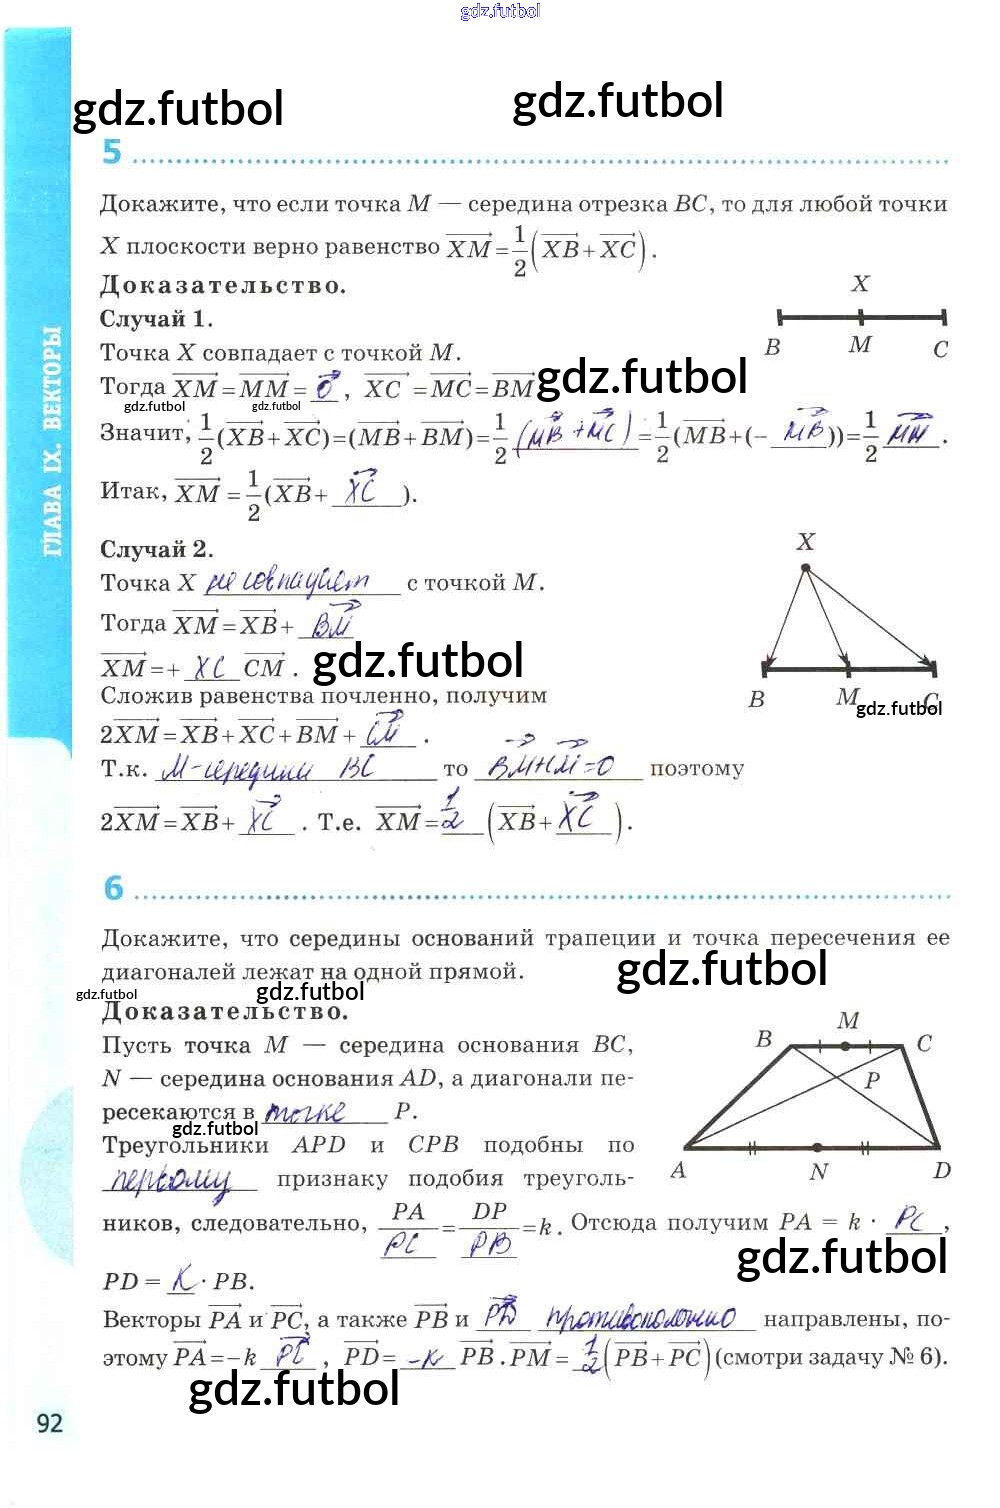 gdz.futbol
gdz.futbol
gdz.futbol
5
Докажите, что если точка M — середина отрезка BC, то для любой точки
X плоскости верно равенство XM = 1/2 (XB + XC).
Доказательство.
Случай 1.
X
B M C
Точка X совпадает с точкой M.
Тогда XM = MM = 0, XC = MC = BM
gdz.futbol
gdz.futbol
gdz.futbol
Значит, 1/2 (XB + XC) = (MB + BM) = 1/2 (MB + MC) = 1/2 (MB + (- MB)) = 1/2 MM.
Итак, XM = 1/2 (XB + XC).
Случай 2.
X
Точка X не совпадает с точкой M.
Тогда XM = XB + BM
XM = + XC CM.
gdz.futbol
B M C
gdz.futbol
Сложив равенства почленно, получим
2XM = XB + XC + BM + CM.
Т.к. M - середина BC то BM+CM=0 поэтому
2XM = XB + XC. Т.е. XM = 1/2 (XB + XC).
ГЛАВА IX. ВЕКТОРЫ
6
Докажите, что середины оснований трапеции и точка пересечения ее
диагоналей лежат на одной прямой.
gdz.futbol
gdz.futbol
gdz.futbol
Доказательство.
Пусть точка M — середина основания BC,
N — середина основания AD, а диагонали пе-
ресекаются в точке P.
gdz.futbol
B M C
P
A N D
Треугольники APD и CPB подобны по
первому признаку подобия треуголь-
ников, следовательно, PA/PC = DP/PB = k. Отсюда получим PA = k · PC,
gdz.futbol
PD = K · PB.
Векторы PA и PC, а также PB и PD противоположно направлены, по-
этому PA = -k PC, PD = -K PB. PM = 1/2 (PB + PC) (смотри задачу № 6).
gdz.futbol
92